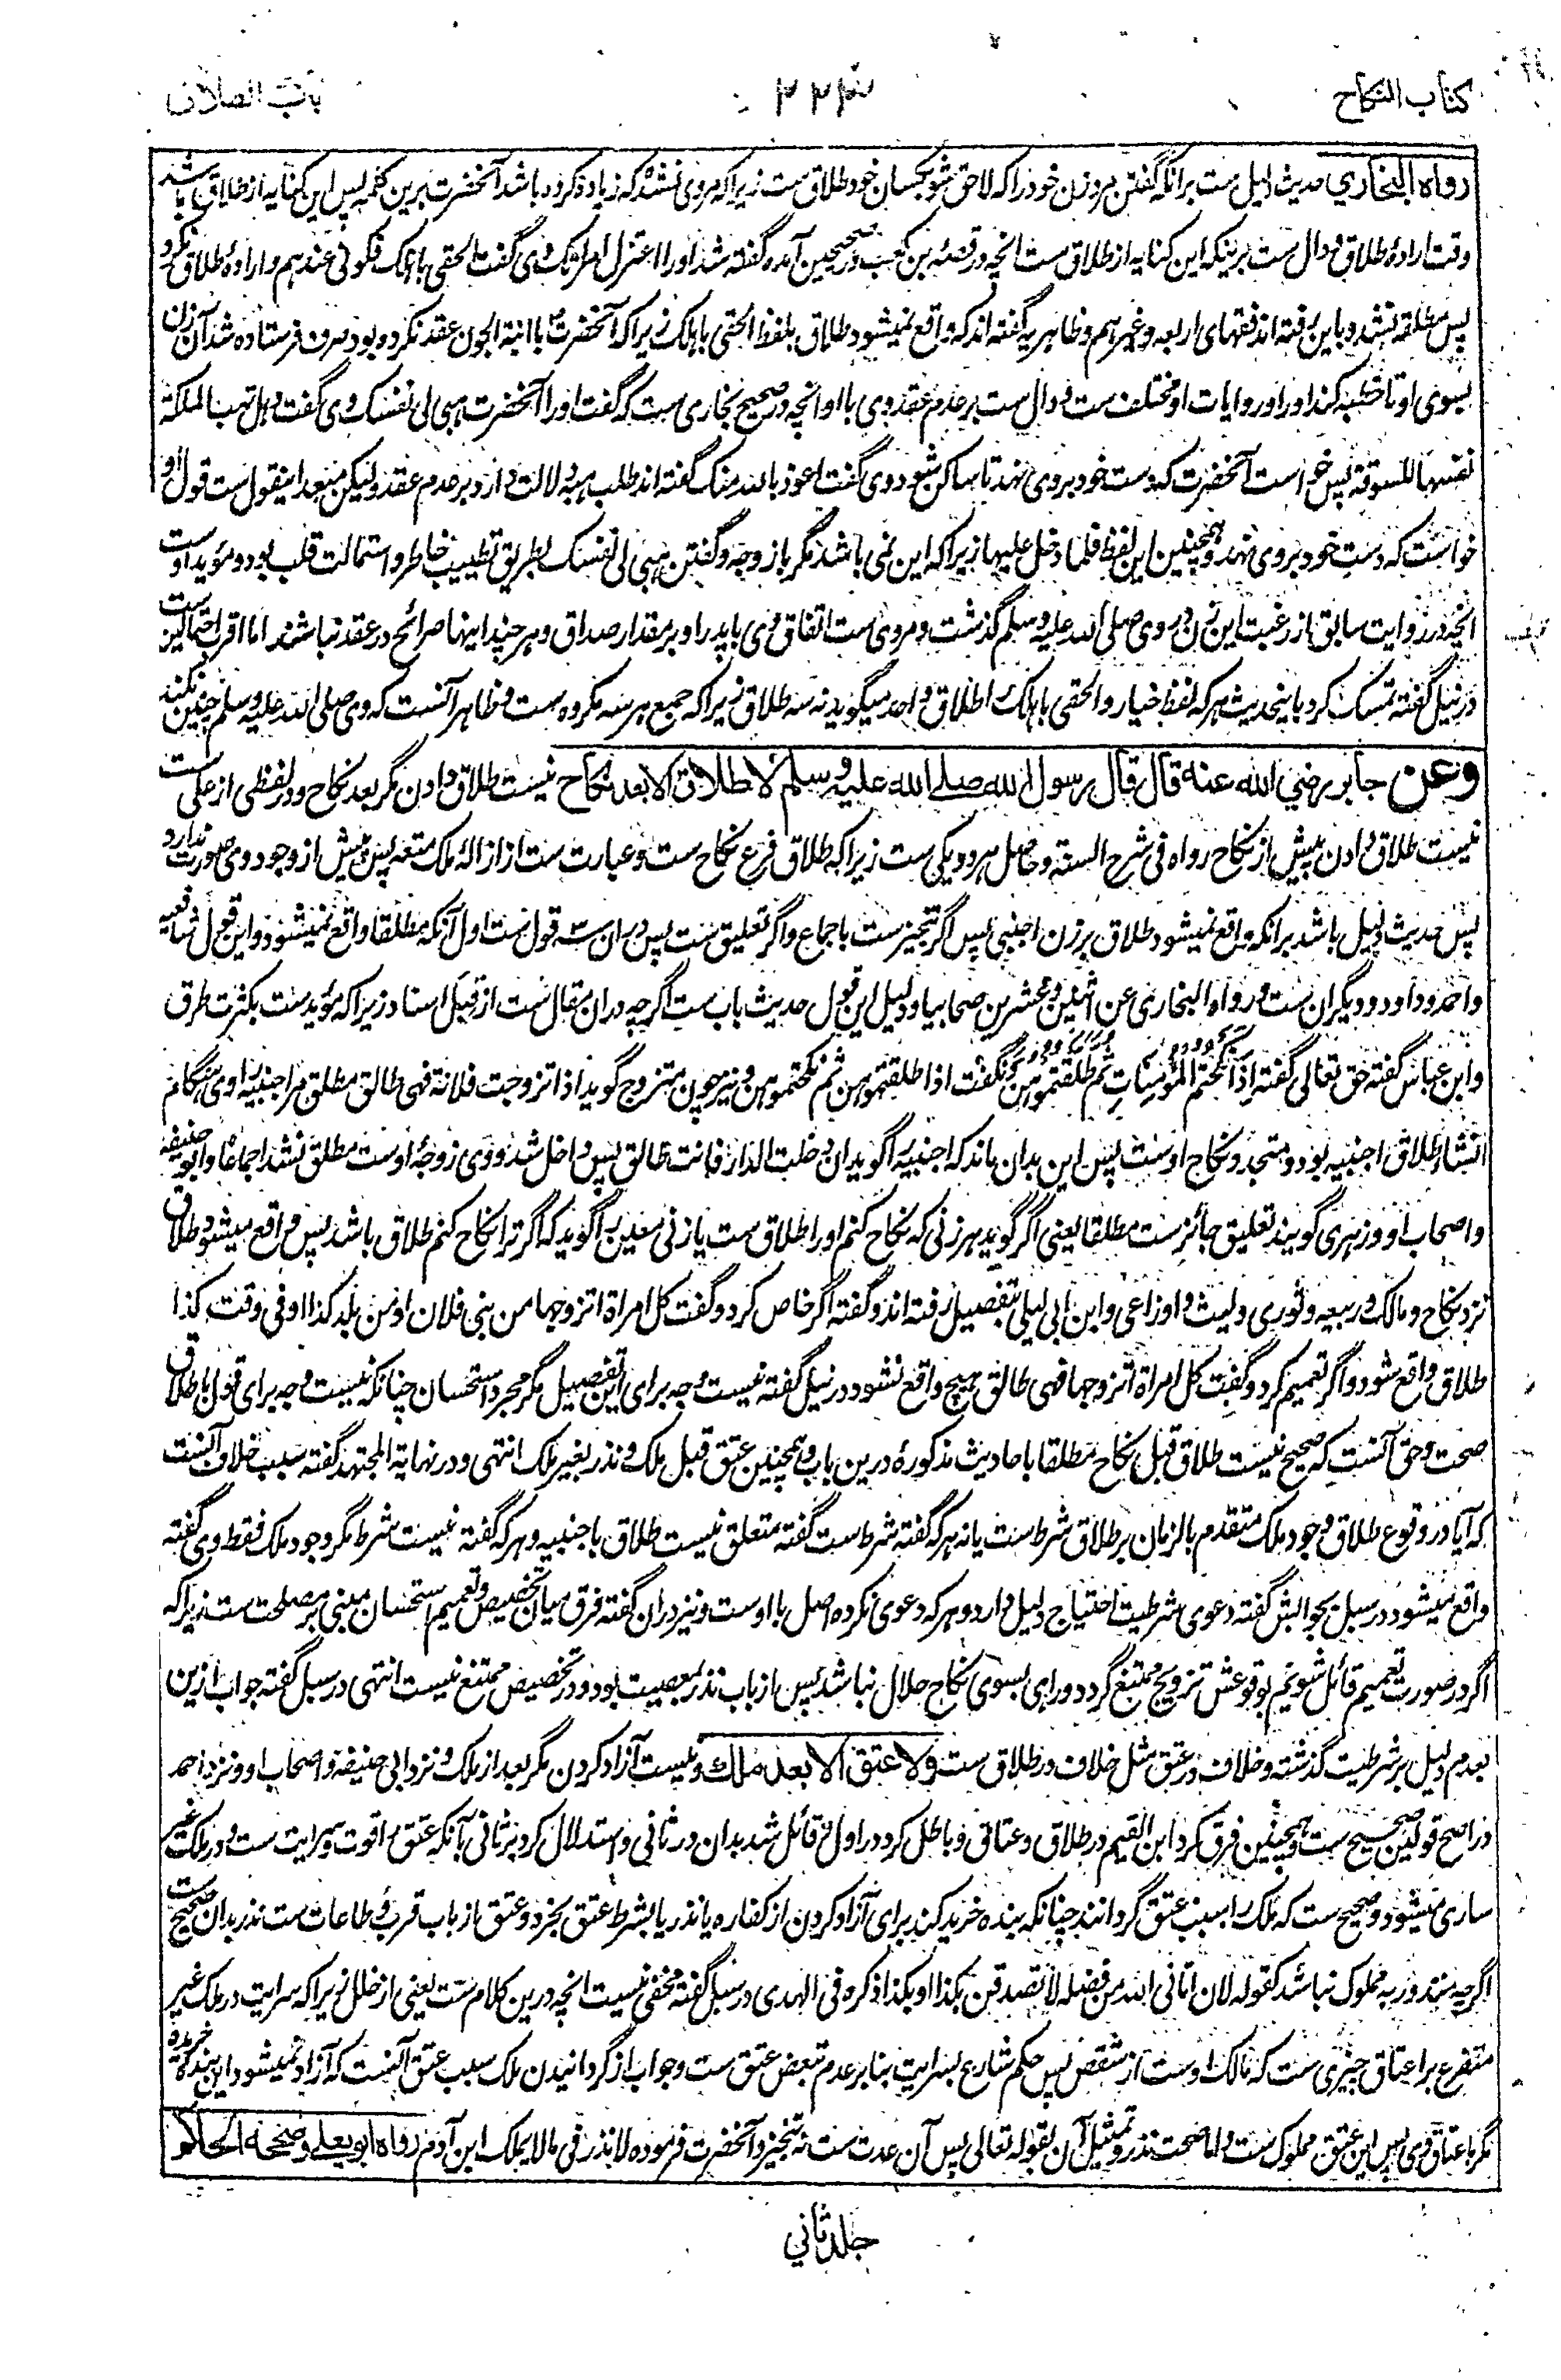 کتاب النکاح
۲۲۳
باب الطلاق
رواه البخاري حدیث دلیل ست برانکه گفتن مرد زن خود را که لاحق شو بکسان خود طلاق ست زیراکه مروی نشده که زیاده کرده باشد آنحضرت برین کلمه پس این کنایه از طلاق باشد
وقت اراده طلاق و دال ست برینکه این کنایه از طلاق ست انچه در قصه بن کعب در صحیحین آمده گفته شد او را اعتزل امراتک وی گفت الحقی باهلک فکونی عندهم و اراده طلاق نکرد
پس مطلقه نشد و باین رفته اند فقهای اربعه و غیرهم و ظاهریه گفته اند که واقع نمیشود طلاق بلفظ الحقی باهلک زیراکه آنحضرت با ابنة الجون عقد نکرده بود صرف فرستاده شد آن زن
بسوی او تا خطبه کند او را و روایات او مختلف ست و دال ست بر عدم عقد وی با او انچه در صحیح بخاری ست که گفت او را آنحضرت هبی لی نفسک وی گفت و هل تهب الملکة
نفسها للسوقة پس خواست آنحضرت که دست خود بر وی نهد تا ساکن شود وی گفت اعوذ بالله منک گفته اند طلب هبه دلالت دارد بر عدم عقد ولیکن مبعد اینقول ست قول او
خواست که دست خود بر وی نهد و همچنین این لفظ فلما دخل علیها زیراکه این نمی باشد مگر با زوجه و گفتن هبی لی نفسک بطریق تطییب خاطر و استمالت قلب بود و مؤید اوست
انچه در روایت سابق از رغبت این زن در وی صلی الله علیه وسلم گذشت و مروی ست اتفاق وی با پدر او بر مقدار صداق و هر چند اینها صرائح در عقد نباشند اما اقرب احتمالین ست
در نیل گفته تمسک کرد باینحدیث هر که لفظ خیار و الحقی باهلک را طلاق واحد میگوید نه سه طلاق زیراکه جمع هر سه مکروه ست و ظاهر آنست که وی صلی الله علیه وسلم چنین نکند
وعن جابر رضي الله عنه قال قال رسول الله صلے الله علیه وسلم لا طلاق الا بعد نکاح نیست طلاق دادن مگر بعد نکاح و در لفظی از علی ست
نیست طلاق دادن پیش از نکاح رواه فی شرح السنة و حاصل هر دو یکی ست زیراکه طلاق فرع نکاح ست و عبارت ست از ازاله ملک متعه پس پیش از وجود وی صورت ندارد
پس حدیث دلیل باشد برانکه واقع نمیشود طلاق بر زن اجنبی پس اگر تنجیز ست باجماع و اگر تعلیق ست پس دران سه قول ست اول آنکه مطلقا واقع نمیشود و این قول شافعیه
و احمد و داود و دیگران ست و رواه البخاری عن اثنین و عشرین صحابیا و دلیل این قول حدیث باب ست اگرچه دران مقال ست از قبل اسناد زیراکه مؤید ست بکثرت طرق
و ابن عباس گفته حق تعالی گفته اِذَا نَکَحْتُمُ المُؤْمِنَاتِ ثُمَّ طَلَّقْتُمُوهُنَّ و نگفت اذا طلقتموهن ثم نکحتموهن و نیز چون متزوج گوید اذا تزوجت فلانة فهی طالق مطلق مر اجنبیه را وی هنگام
انشاء طلاق اجنبیه بود و متجدد نکاح اوست پس این بدان ماند که اجنبیه را گوید ان دخلت الدار فانت طالق پس داخل شد و وی زوجهٔ اوست مطلق نشد اجماعا و ابو حنیفه
و اصحاب او و زهری گویند تعلیق جائز ست مطلقا یعنی اگر گوید هر زنی که نکاح کنم او را طلاق ست یا زنی معین را گوید که اگر ترا نکاح کنم طلاق باشد پس واقع میشود طلاق
نزد نکاح و مالک و ربیعه و ثوری و لیث و اوزاعی و ابن ابی لیلی بتفصیل رفته اند و گفته اگر خاص کرد و گفت کل امراة اتزوجها من بنی فلان او من بلد کذا او فی وقت کذا
طلاق واقع شود و اگر تعمیم کرد و گفت کل امراة اتزوجها فهی طالق هیچ واقع نشود در نیل گفته نیست وجه برای این تفصیل مگر مجرد استحسان چنانکه نیست وجه برای قول باطلاق
صحت و حق آنست که صحیح نیست طلاق قبل نکاح مطلقا باحادیث مذکورهٔ درین باب و همچنین عتق قبل ملک و نذر بغیر ملک انتهی و در نهایة المجتهد گفته سبب خلاف آنست
که آیا در وقوع طلاق وجود ملک متقدم بالزمان بر طلاق شرط ست یا نه هر که گفته شرط ست گفته متعلق نیست طلاق باجنبیه و هر که گفته نیست شرط مگر وجود ملک فقط وی گفته
واقع میشود در سبل بجوابش گفته دعوی شرطیت احتیاج دلیل دارد و هر که دعوی نکرده اصل با اوست و نیز دران گفته فرق میان تخصیص و تعمیم استحسان مبنی بر مصلحت ست زیراکه
اگر در صورت تعمیم قائل شویم بوقوعش تزویج ممتنع گردد و راهی بسوی نکاح حلال نباشد پس از باب نذر بمعصیت بود و در تخصیص ممتنع نیست انتهی در سبل گفته جواب ازین
بعدم دلیل بر شرطیت گذشته و خلاف در عتق مثل خلاف در طلاق ست ولا عتق الا بعد ملك و نیست آزاد کردن مگر بعد از ملک و نزد ابی حنیفه و اصحاب او و نزد احمد
در اصح قولین صحیح ست و همچنین فرق کرد ابن القیم در طلاق و عتاق و باطل کرد در اول و قائل شد بدان در ثانی و استدلال کرد بر ثانی بآنکه عتق را قوت و سرایت ست و در ملک غیر
ساری میشود و صحیح ست که ملک را سبب عتق گردانند چنانکه بنده خرید کند برای آزاد کردن از کفاره یا نذر یا بشرط عتق بخرد و عتق از باب قرب و طاعات ست نذر بدان صحیح ست
اگرچه منذور به مملوک نباشد کقوله لان اتانی الله من فضله لاتصدقن بکذا او بکذا ذکره فی الهدی در سبل گفته مخفی نیست انچه درین کلام ست یعنی از خلل زیراکه سرایت در ملک غیر
متفرع بر اعتاق چیزی ست که مالک اوست از شقص پس حکم شارع بسرایت بنابر عدم تبعض عتق ست و جواب از گردانیدن ملک سبب عتق آنست که آزاد نمیشود این بندهٔ خریده
مگر باعتاق وی پس این عتق مملوک ست و اما صحت نذر و تمثیل آن بقوله تعالی پس آن عدت ست نه تنجیز و آنحضرت فرموده لا نذر فی ما لا یملک ابن آدم رواه ابو یعلے وصححه الحاکم
جلد ثاني